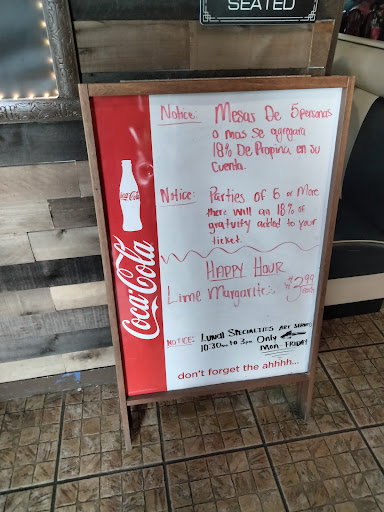 SEATED
Notice: Mesas De 5 personas
o mas se agregara
18% De Propina en su
Cuenta.
Notice: Parties of 5 or More
there will an 18% of
gratuity added to your
ticket.
HAPPY HOUR
Lime Margarita's $3.99
NOTICE: LUNCH SPECIALTIES ARE SERVED
10:30am to 3pm Only
MON FRIDAY
don't forget the ahhhh...
Coca-Cola
Coca-Cola